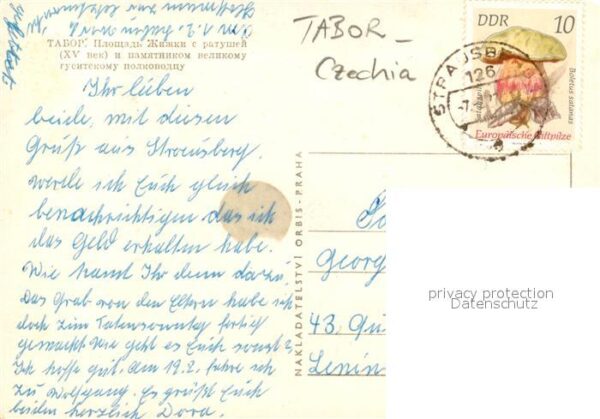 ТАБОР. Площадь Жижки с ратушей
(XV век) и памятником великому
гуситскому полководцу
Ihr lieben
beide, mit diesen
Gruß aus Strausberg.
werde ich Euch gleich
benachrichtigen das ich
das Geld erhalten habe.
Wie kamt Ihr denn dazu?
Das Grab von den Eltern habe ich
doch zum Totensonntag fertig
gemacht. Wie geht es Euch sonst?
Ich hoffe gut. Am 19.2. fahre ich
zu Wolfgang. Es grüßt Euch
beiden herzlich Dora.
TABOR –
Czechia
DDR 10
Boletus satanas
Europäische Giftpilze
STRAUSB
126
NAKLADATELSTVÍ ORBIS - PRAHA
Georg
43, Gu
Lenin
privacy protection
Datenschutz